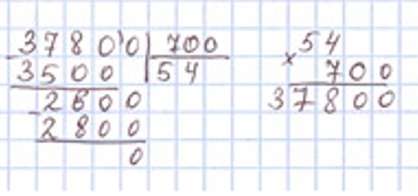 37800 | 700
- 3500 | 54
- 2800
2800
0
54
× 700
37800